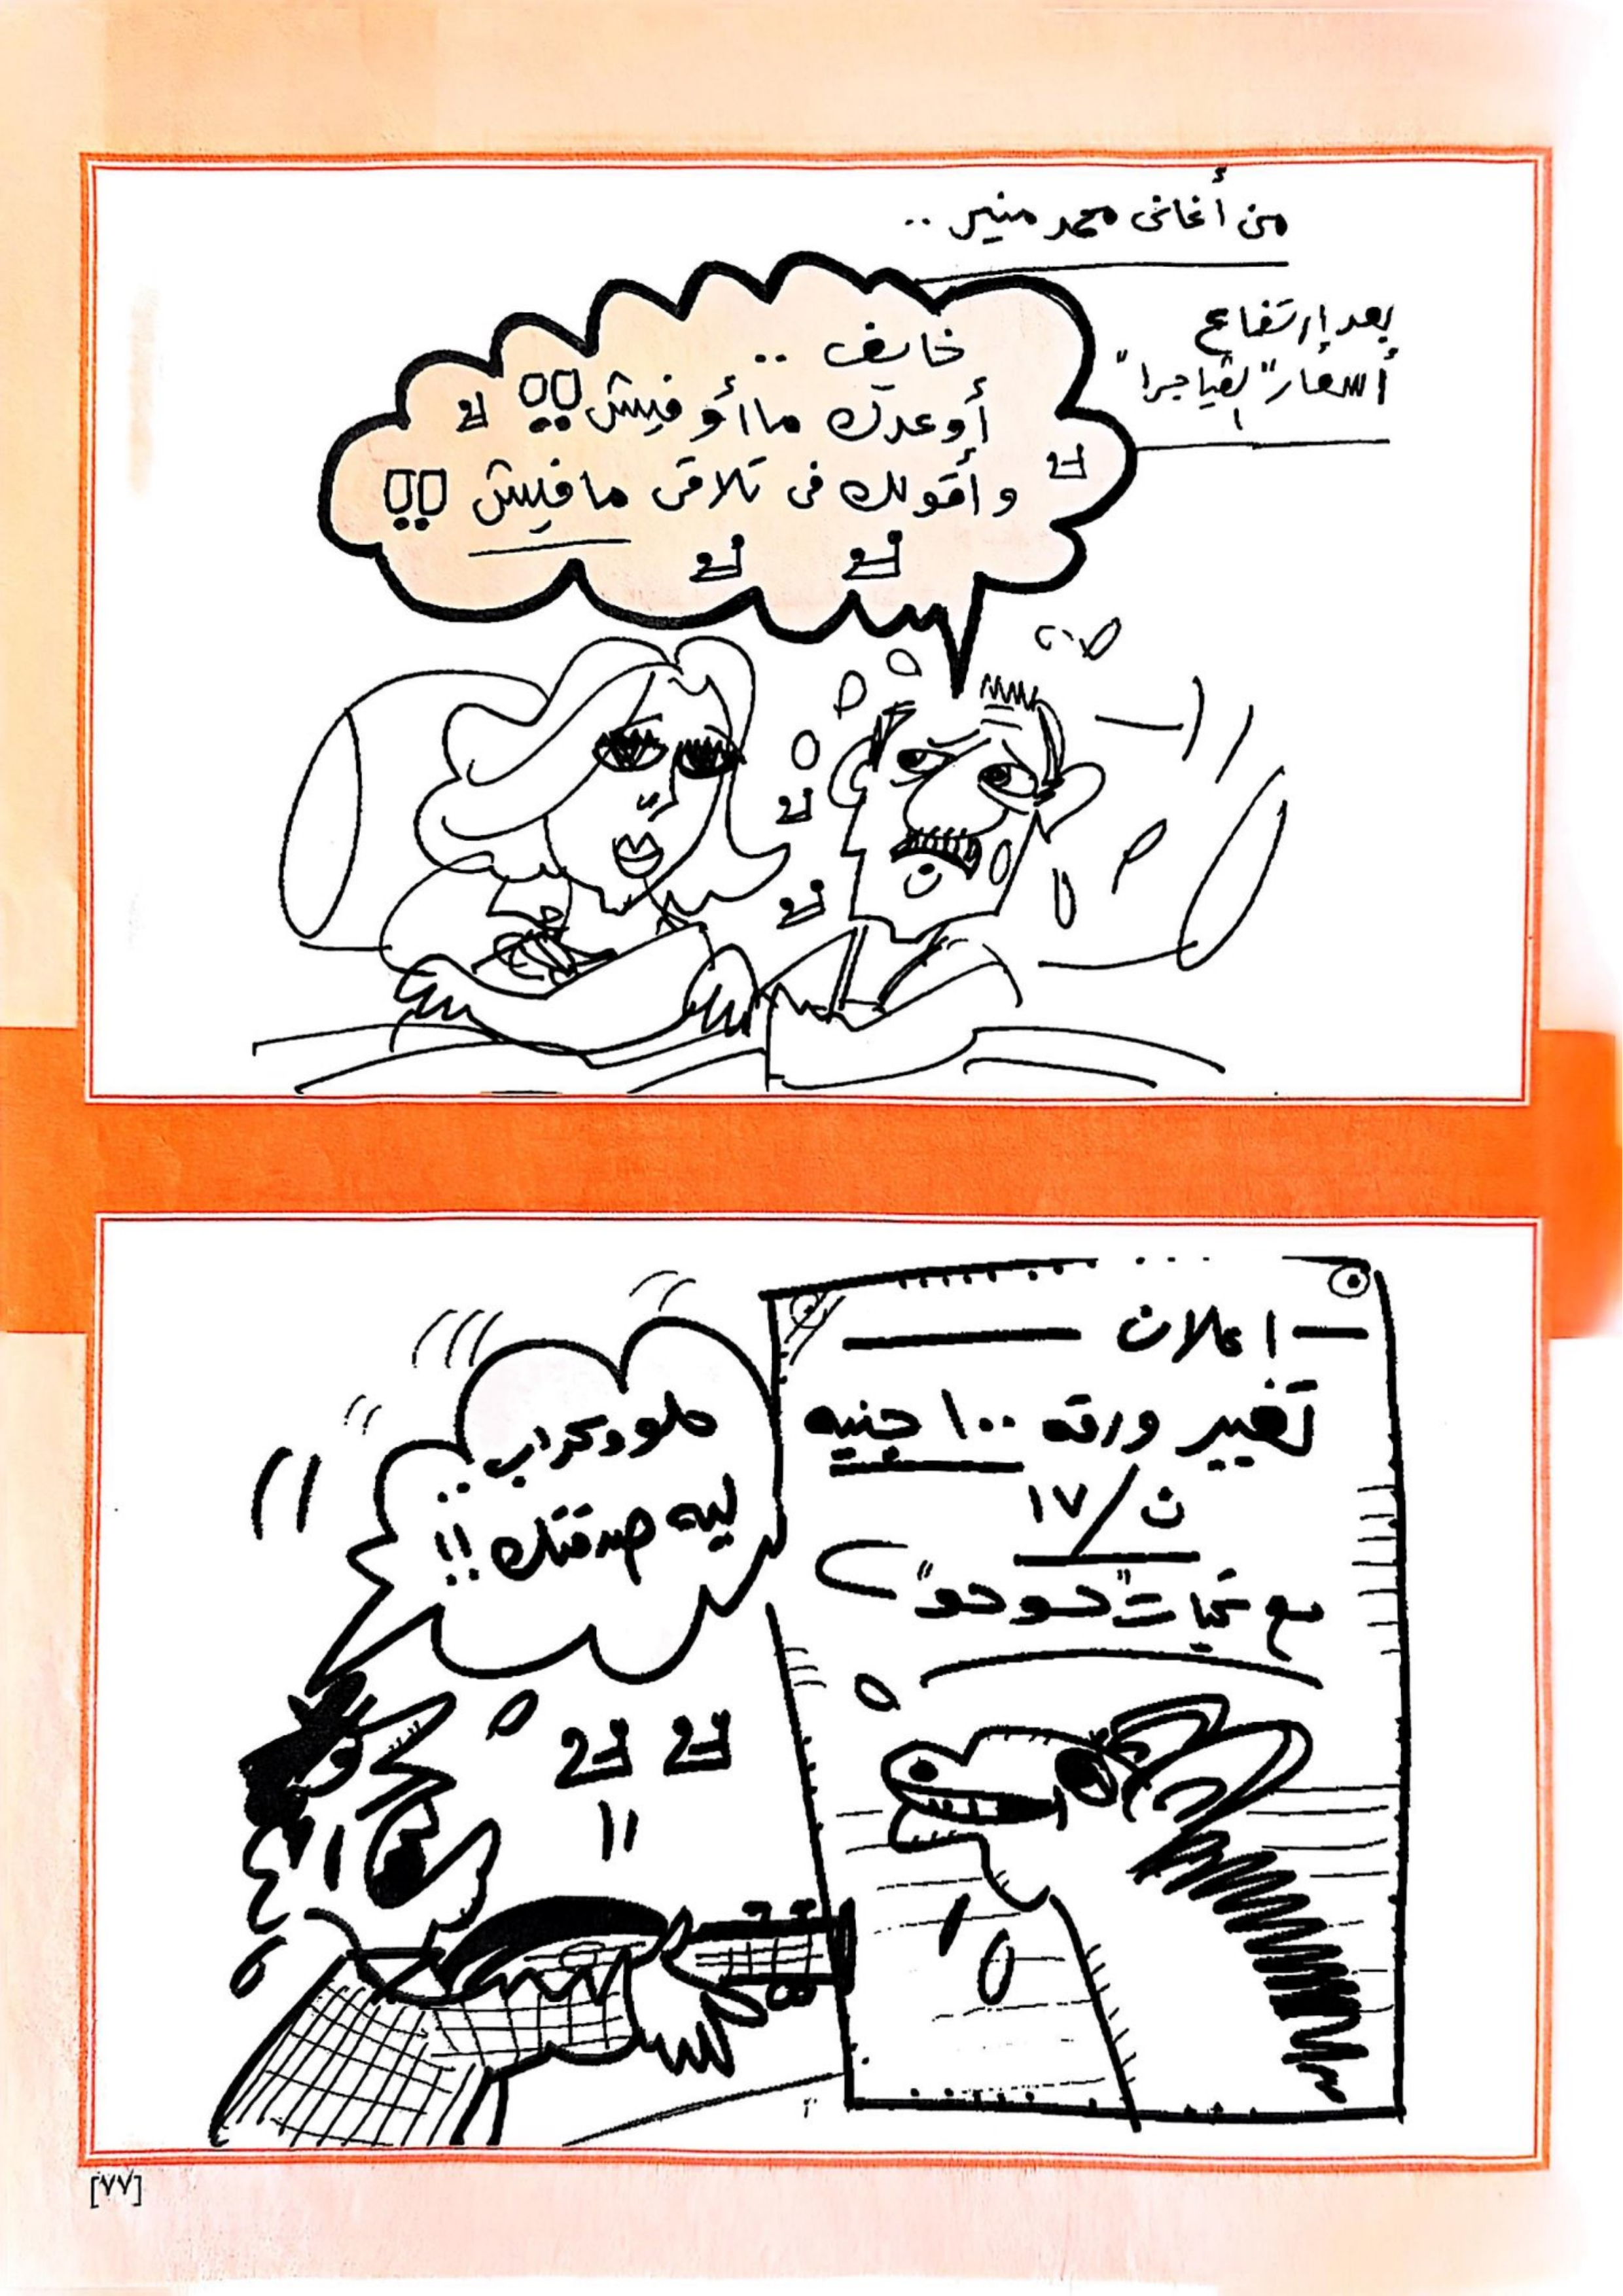 من أغانى محمد منير ..
بعد إرتفاع
أسعار "الڤياجرا"
خايف ..
أوعدك ما أوفيش !!
وأقولك فى تلاقى مافيش !!
اعلان
تغيير ورقه ١٠٠ جنيه
ث/١٧
مع تحيات "حوحو"
حلو وكداب ..
ليه صدقتك !!
[٧٧]